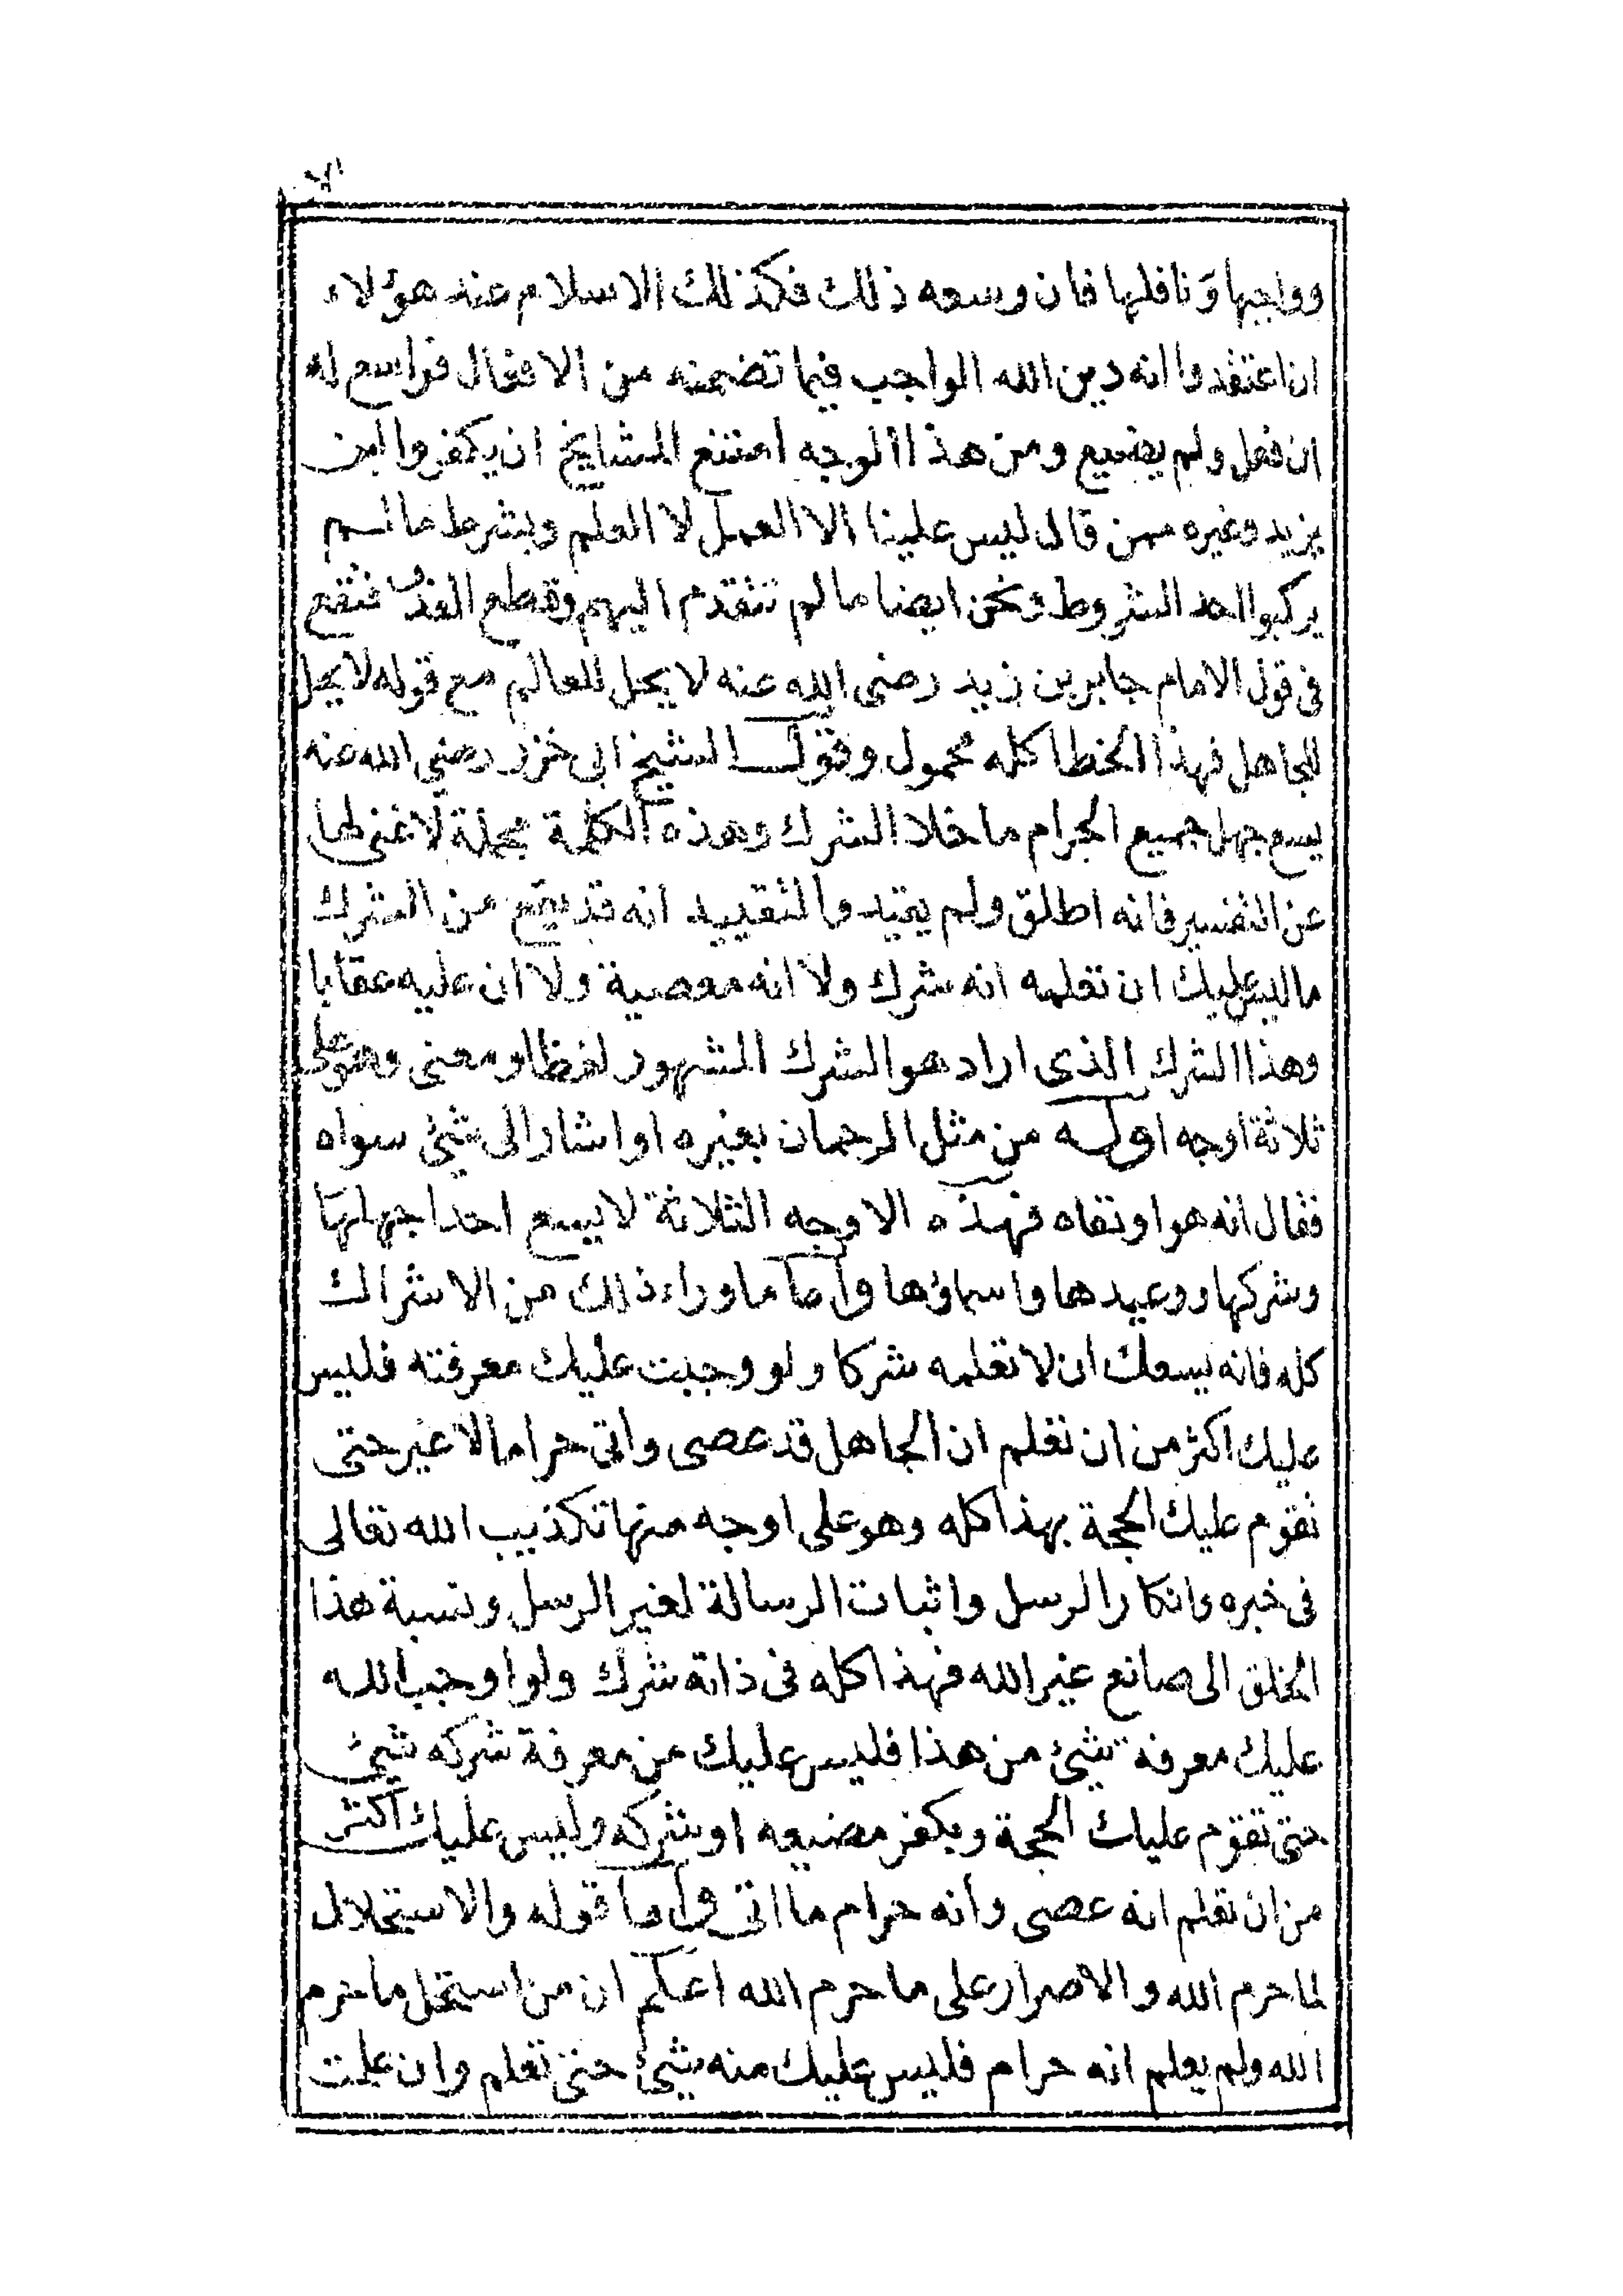 وواجبها ونافلها فان وسعه ذلك فكذلك الاسلام عند هؤلاء
ان اعتقدوا انه دين الله الواجب فيما تضمنه من الافعال فواسع له
ان فعل ولم يضيع ومن هذا الوجه امتنع المشايخ ان يكفروا ابن
يزيد وغيره ممن قال ليس علينا الا العمل لا العلم وبشرط ما لم
يركبوا احد الشروط ونحن ايضا ما لم نتقدم اليهم وقطع العذر فتقع
فى قول الامام جابر بن زيد رضى الله عنه لا يحل للعالم مع قوله لا يحل
للجاهل فهذا الخطا كله محمول وقول الشيخ ابى خزر رضي الله عنه
يسع جهل جميع الحرام ما خلا الشرك وهذه الكلمة مجملة لا غنى لها
عن التفسير فانه اطلق ولم يقيد والتقييد انه قد يقع من الشرك
ما ليس عليك ان تعلمه انه شرك ولا انه معصية ولا ان عليه عقابا
وهذا الشرك الذى اراد هو الشرك المشهور لفظا ومعنى وهو على
ثلاثة اوجه اوله من مثل الرحمان بغيره او اشار الى شئ سواه
فقال انه هو او نفاه فهذه الاوجه الثلاثة لا يسع احدا جهلها
وشركها ووعيدها واسماؤها وأما ما وراء ذلك من الاشراك
كله فانه يسعك ان لا تعلمه شركا ولو وجبت عليك معرفته فليس
عليك اكثر من ان تعلم ان الجاهل قد عصى واتى حراما لا غير حتى
تقوم عليك الحجة بهذا كله وهو على اوجه منها تكذيب الله تعالى
فى خبره وانكار الرسل واثبات الرسالة لغير الرسل ونسبة هذا
الخلق الى صانع غير الله فهذا كله فى ذاته شرك ولو اوجب الله
عليك معرفة شئ من هذا فليس عليك من معرفة شركه شئ
حتى تقوم عليك الحجة ويكفر مضيعه او شركه وليس عليك اكثر
من ان تعلم انه عصى وأنه حرام ما اتى وأما قوله والاستحلال
لما حرم الله والاصرار على ما حرم الله اعلم ان من استحل ما حرم
الله ولم يعلم انه حرام فليس عليك منه شئ حتى تعلم وان علمت